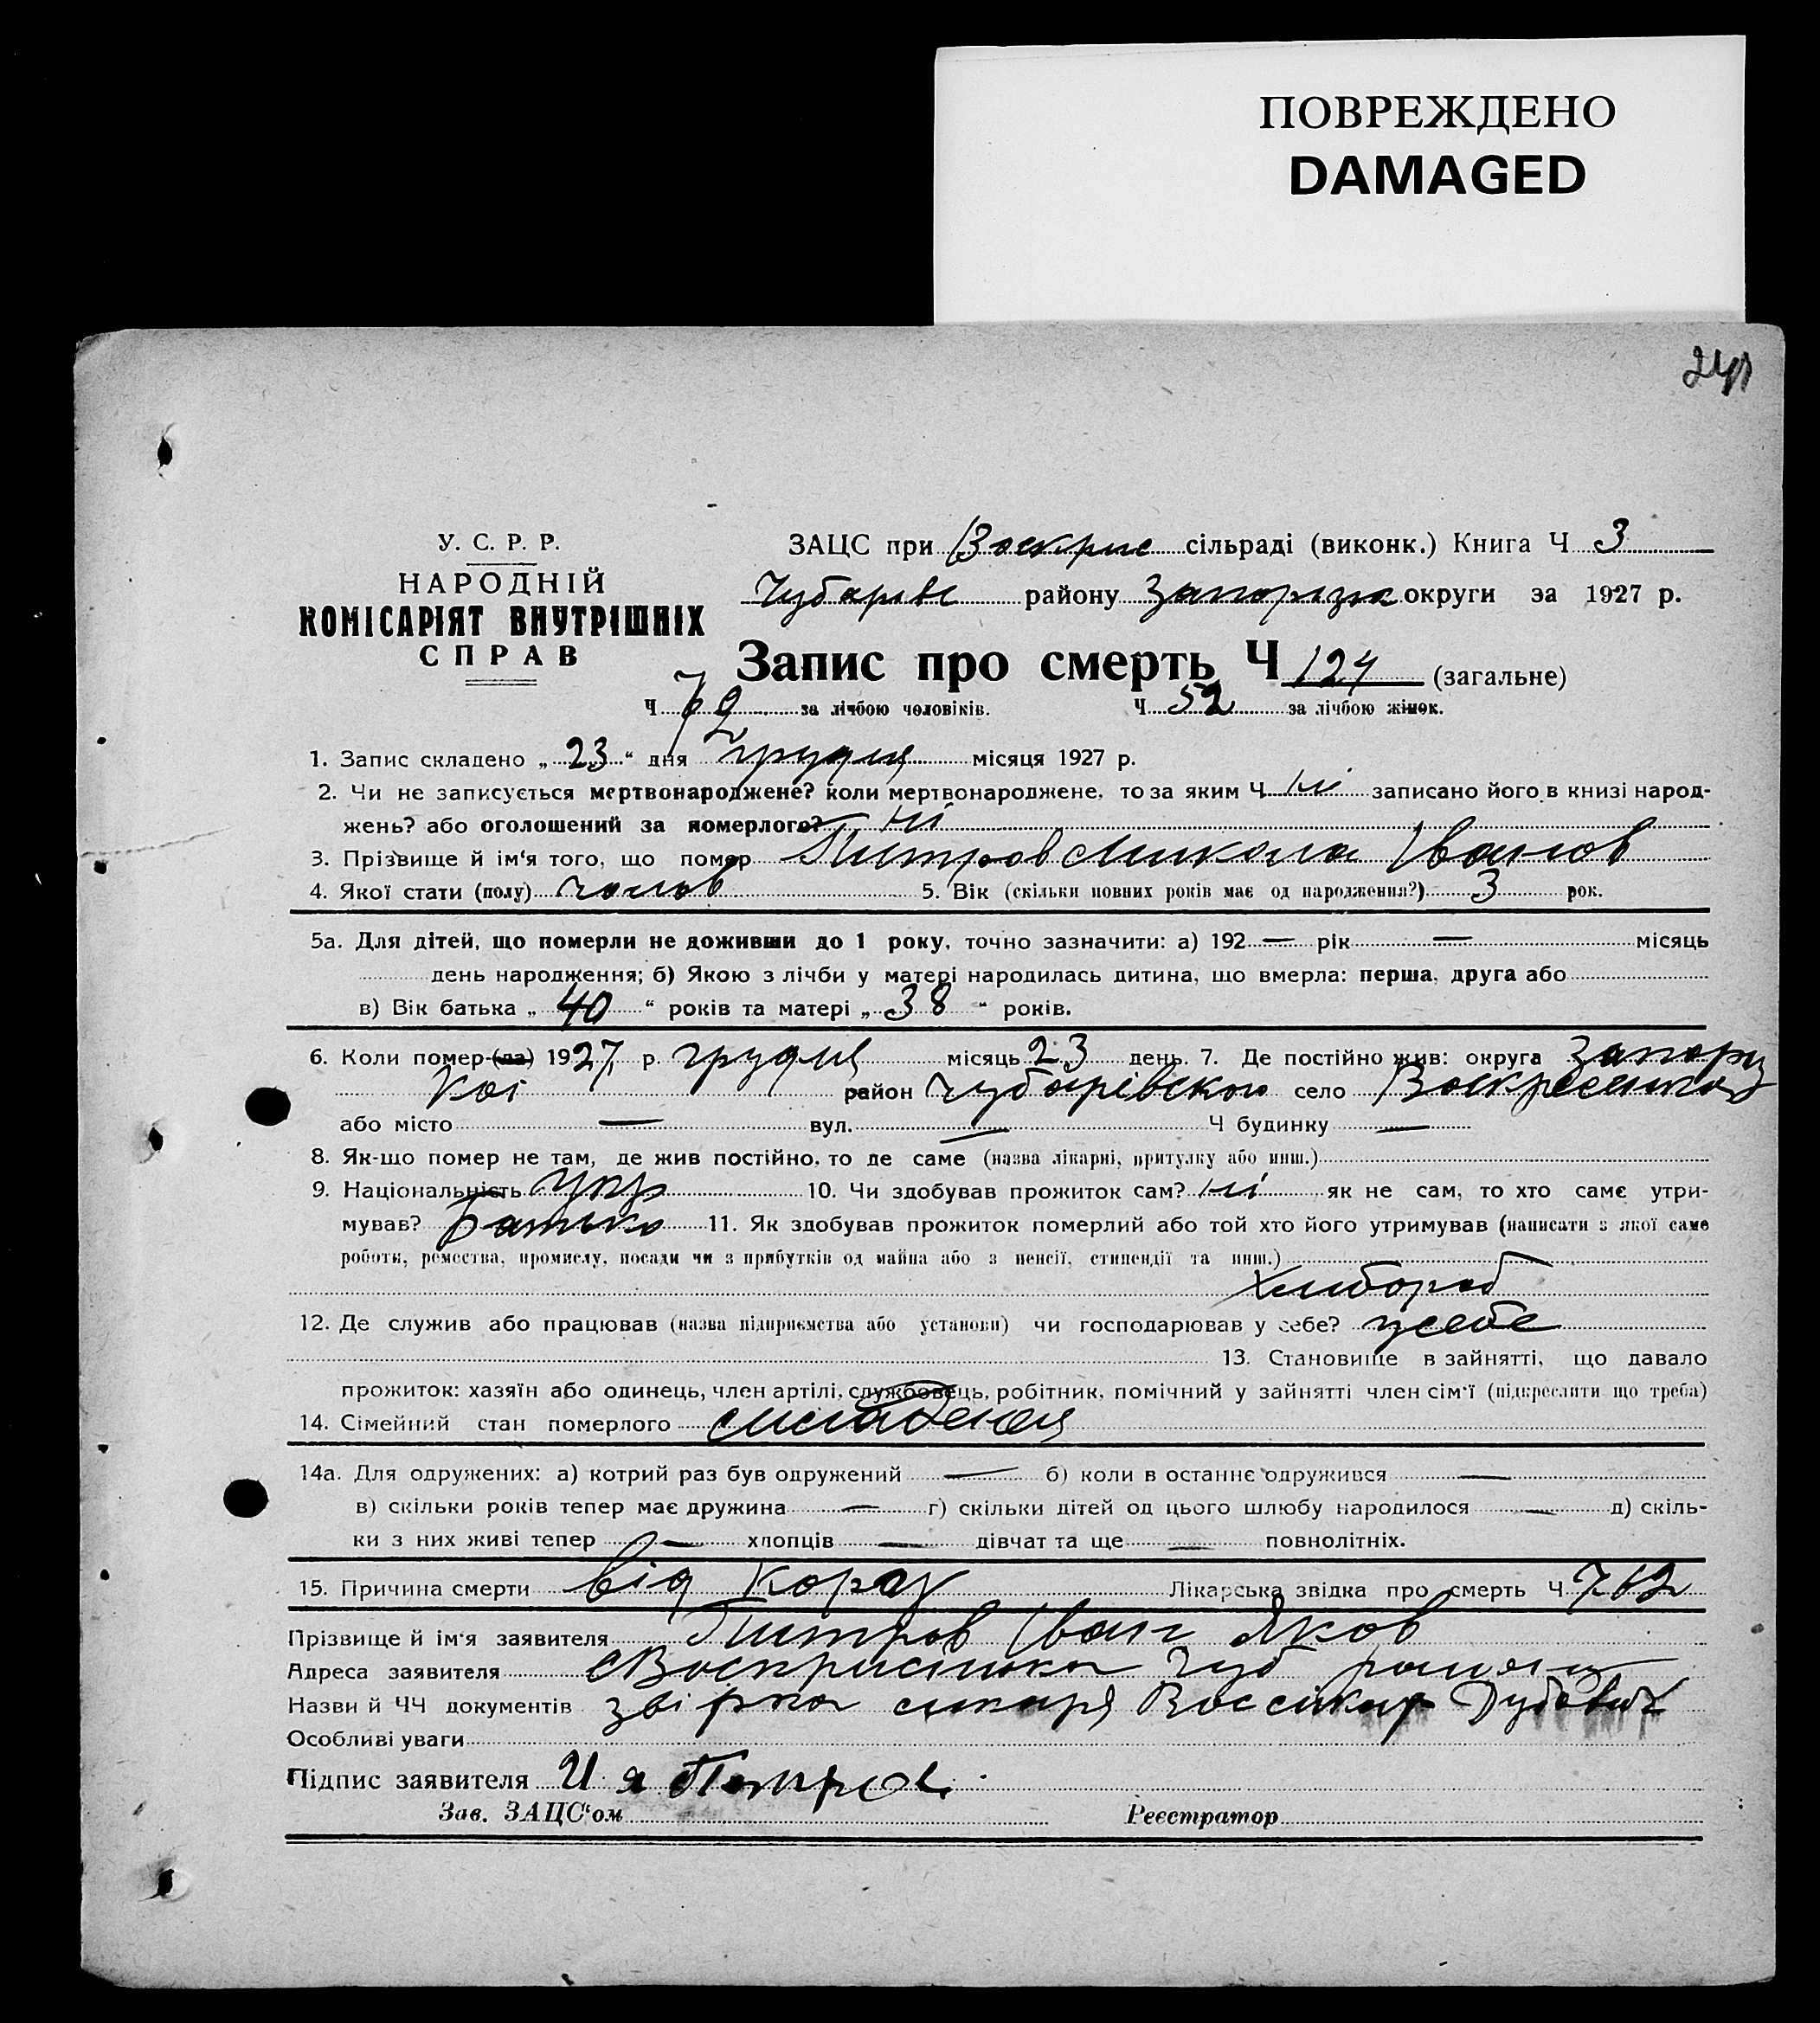 ПОВРЕЖДЕНО
DAMAGED
У. С. Р. Р.
НАРОДНІЙ
КОМІСАРІЯТ ВНУТРІШНІХ
СПРАВ
ЗАЦС при Воскрис сільраді (виконк.) Книга Ч 3
Чубарівс району Запорізк округи за 1927 р.
Запис про смерть Ч 124 (загальне)
Ч 72 за лічбою чоловіків. Ч 52 за лічбою жінок.
1. Запис складено „ 23 “ дня грудня місяця 1927 р.
2. Чи не записується мертвонароджене? коли мертвонароджене, то за яким Ч ні записано його в книзі народ-
жень? або оголошений за померлого? ні
3. Прізвище й ім‘я того, що помер Питров Микола Іванов
4. Якої стати (полу) чолов 5. Вік (скільки повних років має од народження?) 3 рок.
5а. Для дітей, що померли не доживши до 1 року, точно зазначити: а) 192 — рік — місяць
день народження; б) Якою з лічби у матері народилась дитина, що вмерла: перша, друга або
в) Вік батька „ 40 “ років та матері „ 38 “ років.
6. Коли помер-(ла) 1927 р. грудня місяць 23 день. 7. Де постійно жив: округа Запорiз
кої район Чубарівского село Воскресенка
або місто — вул. — Ч будинку —
8. Як-що помер не там, де жив постійно, то де саме (назва лікарні, притулку або инш.)
9. Національність Укр 10. Чи здобував прожиток сам? ні як не сам, то хто саме утри-
мував? Батько 11. Як здобував прожиток померлий або той хто його утримував (написати з якої саме
роботи, ремества, промислу, посади чи з прибутків од майна або з пенсії, стипендії та инш.)
хлибороб
12. Де служив або працював (назва підприємства або установи) чи господарював у себе? у себе
13. Становище в зайнятті, що давало
прожиток: хазяїн або одинець, член артілі, службовець, робітник, помічний у зайнятті член сім‘ї (підкреслити що треба)
14. Сімейний стан померлого
14а. Для одружених: а) котрий раз був одружений — б) коли в останнє одружився —
в) скільки років тепер має дружина — г) скільки дітей од цього шлюбу народилося — д) скіль-
ки з них живі тепер — хлопців — дівчат та ще — повнолітніх.
15. Причина смерти від кору Лікарська звідка про смерть Ч 762
Прізвище й ім‘я заявителя Питров Іван Яков
Адреса заявителя с Воскрисінка Чуб району
Назви й ЧЧ документів звірка
Особливі уваги
Підпис заявителя И я Петров
Зав. ЗАЦС‘ом Реєстратор